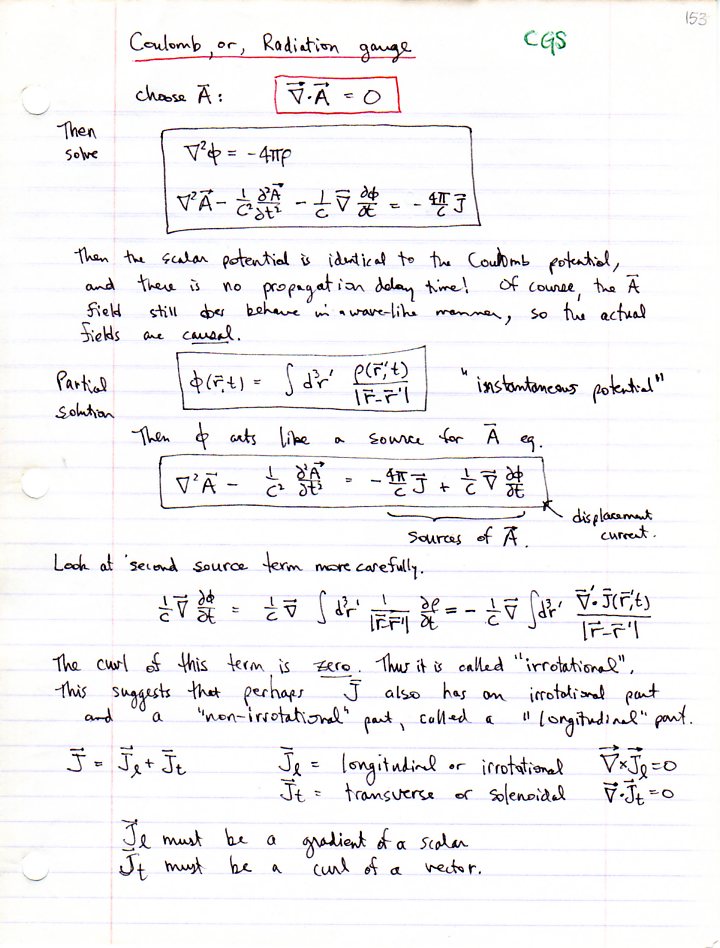 153
Coulomb, or, Radiation gauge CGS
choose A⃗ : ∇⃗·A⃗ = 0
Then
solve
∇²φ = -4πρ
∇²A⃗ - 1/c² ∂²A⃗/∂t² - 1/c ∇⃗ ∂φ/∂t = - 4π/c J⃗
Then the scalar potential is identical to the Coulomb potential,
and there is no propagation delay time! Of course, the A⃗
field still does behave in a wave-like manner, so the actual
fields are causal.
Partial
solution
φ(r⃗,t) = ∫ d³r' ρ(r⃗',t)/|r⃗-r⃗'| "instantaneous potential"
Then φ acts like a source for A⃗ eq.
∇²A⃗ - 1/c² ∂²A⃗/∂t² = - 4π/c J⃗ + 1/c ∇⃗ ∂φ/∂t
sources of A⃗.
displacement
current.
Look at second source term more carefully.
1/c ∇⃗ ∂φ/∂t = 1/c ∇⃗ ∫ d³r' 1/|r⃗-r⃗'| ∂ρ/∂t = - 1/c ∇⃗ ∫ d³r' ∇⃗'·J⃗(r⃗',t)/|r⃗-r⃗'|
The curl of this term is zero. Thus it is called "irrotational".
This suggests that perhaps J⃗ also has an irrotational part
and a "non-irrotational" part, called a "longitudinal" part.
J⃗ = J⃗ℓ + J⃗t J⃗ℓ = longitudinal or irrotational ∇⃗×J⃗ℓ = 0
J⃗t = transverse or solenoidal ∇⃗·J⃗t = 0
J⃗ℓ must be a gradient of a scalar
J⃗t must be a curl of a vector.